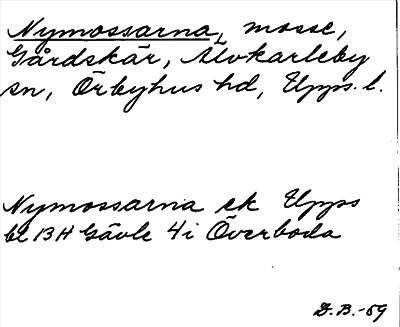 Nymossarna, mosse,
Gårdskär, Älvkarleby
sn, Örbyhus hd, Upps. l.
Nymossarna ek Upps
bl 13H Gävle 4i Överboda
D.B.-59